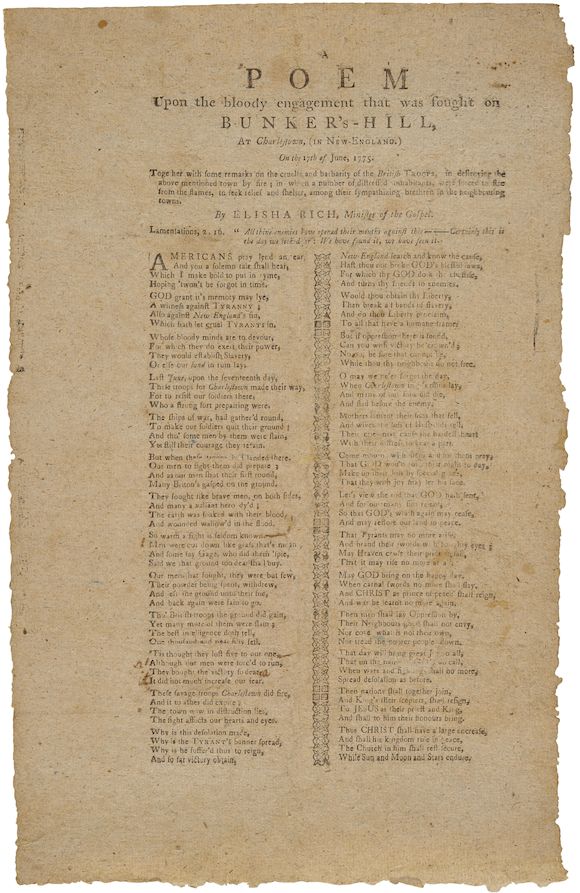 A
POEM
Upon the bloody engagement that was fought on
BUNKER's-HILL,
AT Charlestown, (IN NEW-ENGLAND.)
On the 17th of June, 1775.
Together with some remarks on the cruelty and barbarity of the British TROOPS, in destroying the
above mentioned town by fire; in which a number of distressed inhabitants, were forced to flee
from the flames, to seek relief and shelter, among their sympathizing brethren in the neighbouring
towns.
By ELISHA RICH, Minister of the Gospel.
Lamentations, 2. 16. " All thine enemies have opened their mouths against thee——Certainly this is
the day we looked for: We have found it, we have seen it."
AMERICANS pray lend an ear,
And you a solemn tale shall hear,
Which I make bold to put in ryme,
Hoping twon't be forgot in time.
GOD grant it's memory may lye,
A witness against TYRANNY;
Also against New England's sin,
Which hath let cruel TYRANTS in.
Whose bloody minds are to devour,
For which they do exert their power,
They would establish Slavery,
Or else our land in ruin lay.
Last June, upon the seventeenth day,
These troops for Charlestown made their way,
For to resist our soldiers there,
Who a strong fort preparing were.
The ships of war, had gather'd round,
To make our soldiers quit their ground;
And tho' some men by them were slain,
Yet still their courage they retain.
But when these landed there,
Our men to fight them did prepare;
And as our men shot their first round,
Many Britons gasped on the ground.
They fought like brave men, on both sides,
And many a valiant hero dy'd;
The earth was soaked with their blood,
And wounded wallow'd in the flood.
So warm a fight is seldom known
Men were cut down like grass that's mown,
And some say Gage, who did them 'spie,
Said we that ground too dear shall buy.
Our men that fought, they were but few,
Their powder being spent, withdrew,
And left the ground unto their foe,
And back again were fain to go.
Tho' British troops the ground did gain,
Yet many more of them were slain;
The best intelligence doth tell,
One thousand and near fifty fell.
'Tis thought they lost five to our one,
Although our men were forc'd to run,
They bought the victory so dear,
It did not much increase our fear.
These savage troops Charlestown did fire,
And it to ashes did expire;
The town now in destruction lies,
The sight afflicts our hearts and eyes.
Why is this desolation made,
Why is the TYRANT's banner spread,
Why is he suffer'd thus to reign,
And so far victory obtain,
New England search and know the cause,
Hast thou not broke GOD's blessed laws,
For which thy GOD doth thee chastise,
And turns thy friends to enemies.
Would thou obtain thy Liberty,
Then break all bonds of slavery,
And do thou Liberty proclaim,
To all that have a humane frame.
But if oppression there is found,
Can you with victory be crown'd;
No, no, be sure that cannot be,
While thou thy neighbour do not free.
O may we ne'er forget the day,
When Charlestown in ashes lay,
And many of our sons did die,
And fled before the enemy.
Mothers lament their sons that fell,
And wives the loss of Husbands tell,
Their cries must cause the hardest heart
With their distress to bear a part.
Come mourn with them and for them pray,
That GOD would their
That they with joy may lift his face.
Let's view the rod that GOD hath sent,
And for our many sins repent,
So that GOD's wrath again may cease,
And may restore our land to peace.
That Tyrants may no more arise,
And brand their swords before our eyes;
May Heaven crush their
That it may rise no more at
May GOD bring on the happy day,
When carnal swords no more shall slay,
And CHRIST as prince of peace shall reign,
And war be learnt no more again.
Then men shall lay Oppression by,
Their Neighbours good shall not envy,
Nor covet what is not their own,
Nor tread the power people down.
That day will bring great J to all,
That on the name call,
When wars and fightings shall no more,
Spread desolation as before.
Then nations shall together join,
And King's their scepters, shall resign,
To JESUS as their priest and King,
And shall to him their honours bring.
Thus CHRIST shall have a large encrease,
And shall his kingdom rule in peace,
The Church in him shall rest secure,
While Sun and Moon and Stars endure.